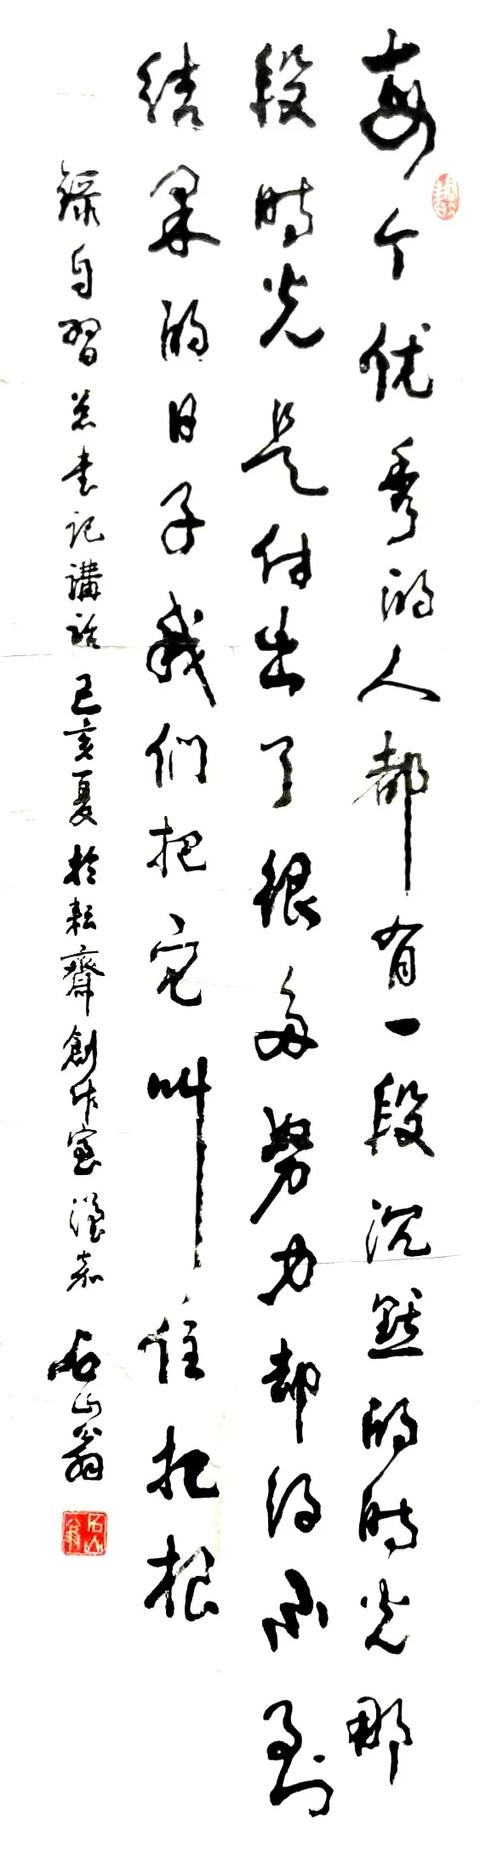 每个优秀的人都有一段沉默的時光那
段時光是付出了很多努力却得不到
结果的日子我们把它叫住扎根
録自習总书记講話己亥夏於耘齋創作室湯嘉石山翁
石山翁